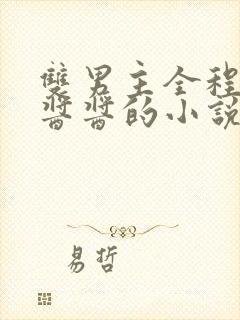 雙男主全程
醬醬的小說
易哲